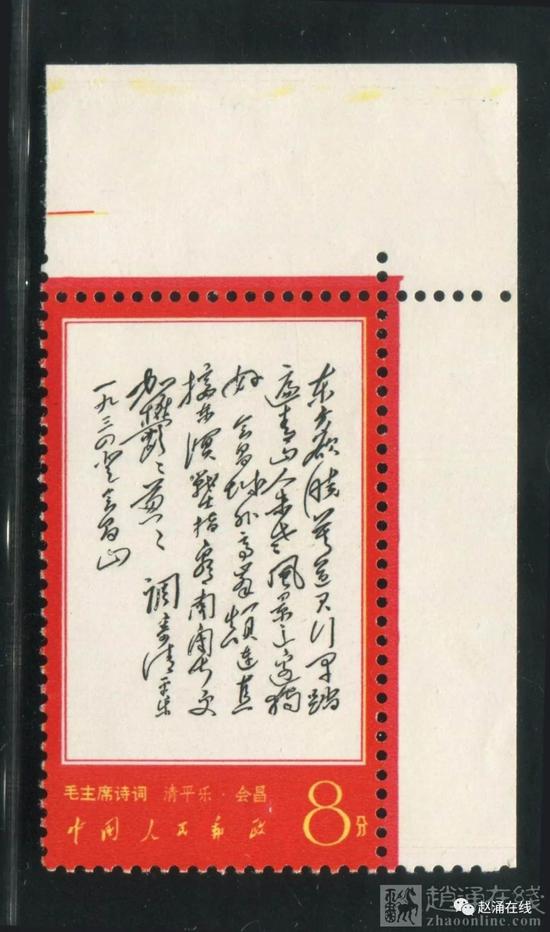 东方欲晓莫道君行早踏
遍青山人未老風景这边独
好 会昌城外高峰颠连直
接东溟战士指看南粤更
加鬱々葱々 调寄清平乐
一九三四登会昌山
毛主席诗词 清平乐·会昌
中国人民邮政
8分
趙涌在线
www.zhaoonline.com
赵涌在线